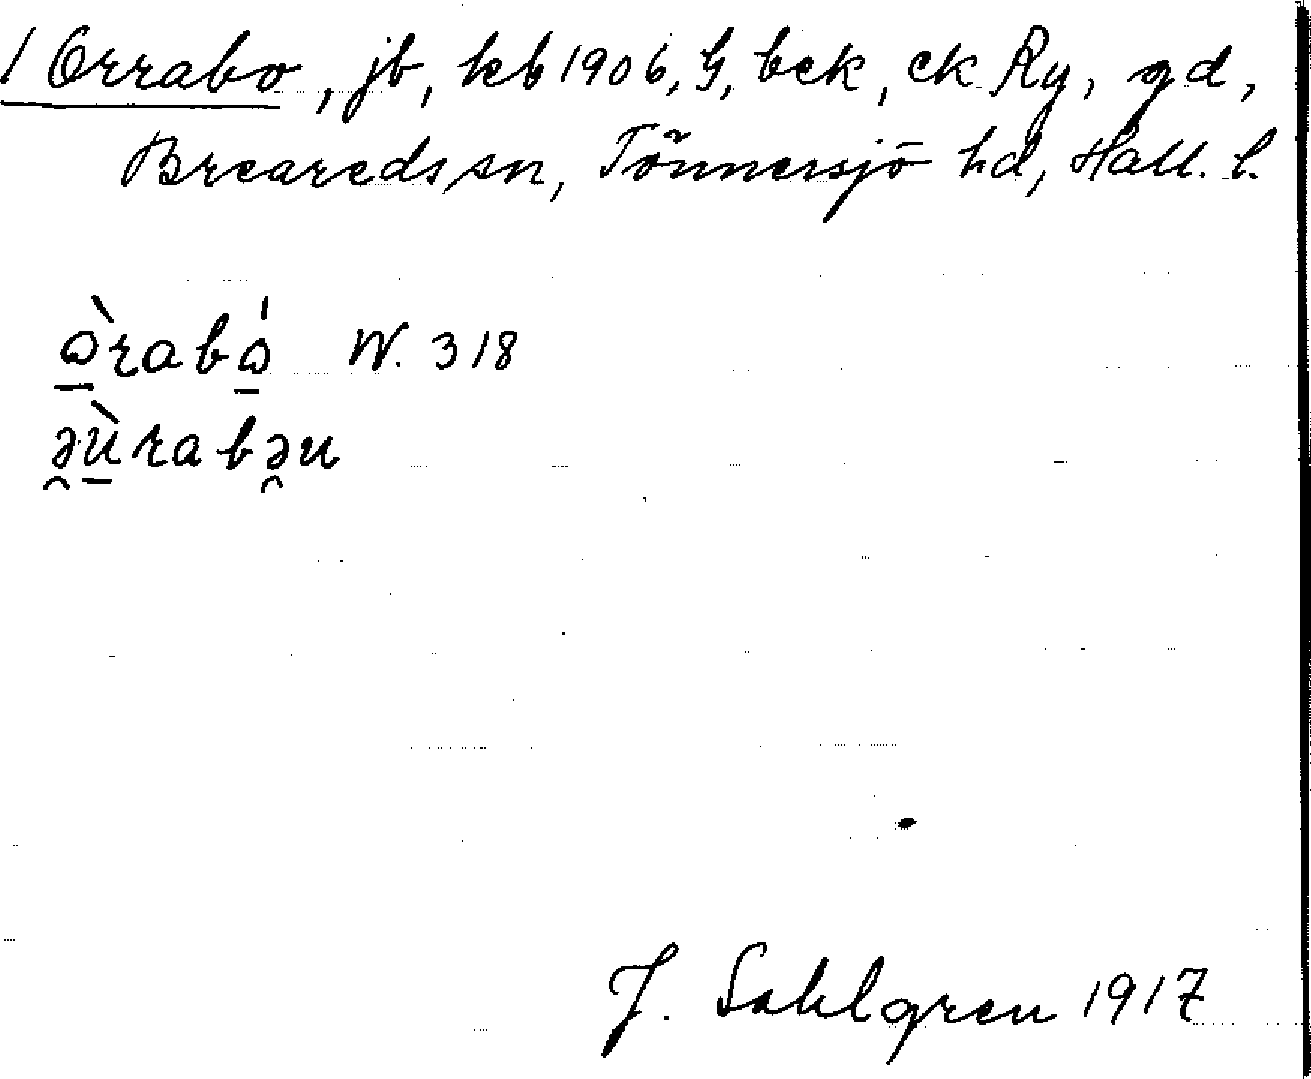 1 Orrabo, jb, kb 1906, G, bck, ck Ry, gd,
Breareds sn, Tönnersjö hd, Hall. l.
ò̲rabó̲ W. 318
ə̯ù̲rabə̯u
J. Sahlgren 1917